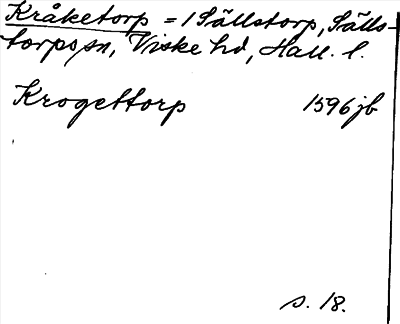 Kråketorp = 1 Sällstorp, Sälls-
torps sn, Viske hd, Hall. l.
Krogettorp 1596 jb
s. 18.